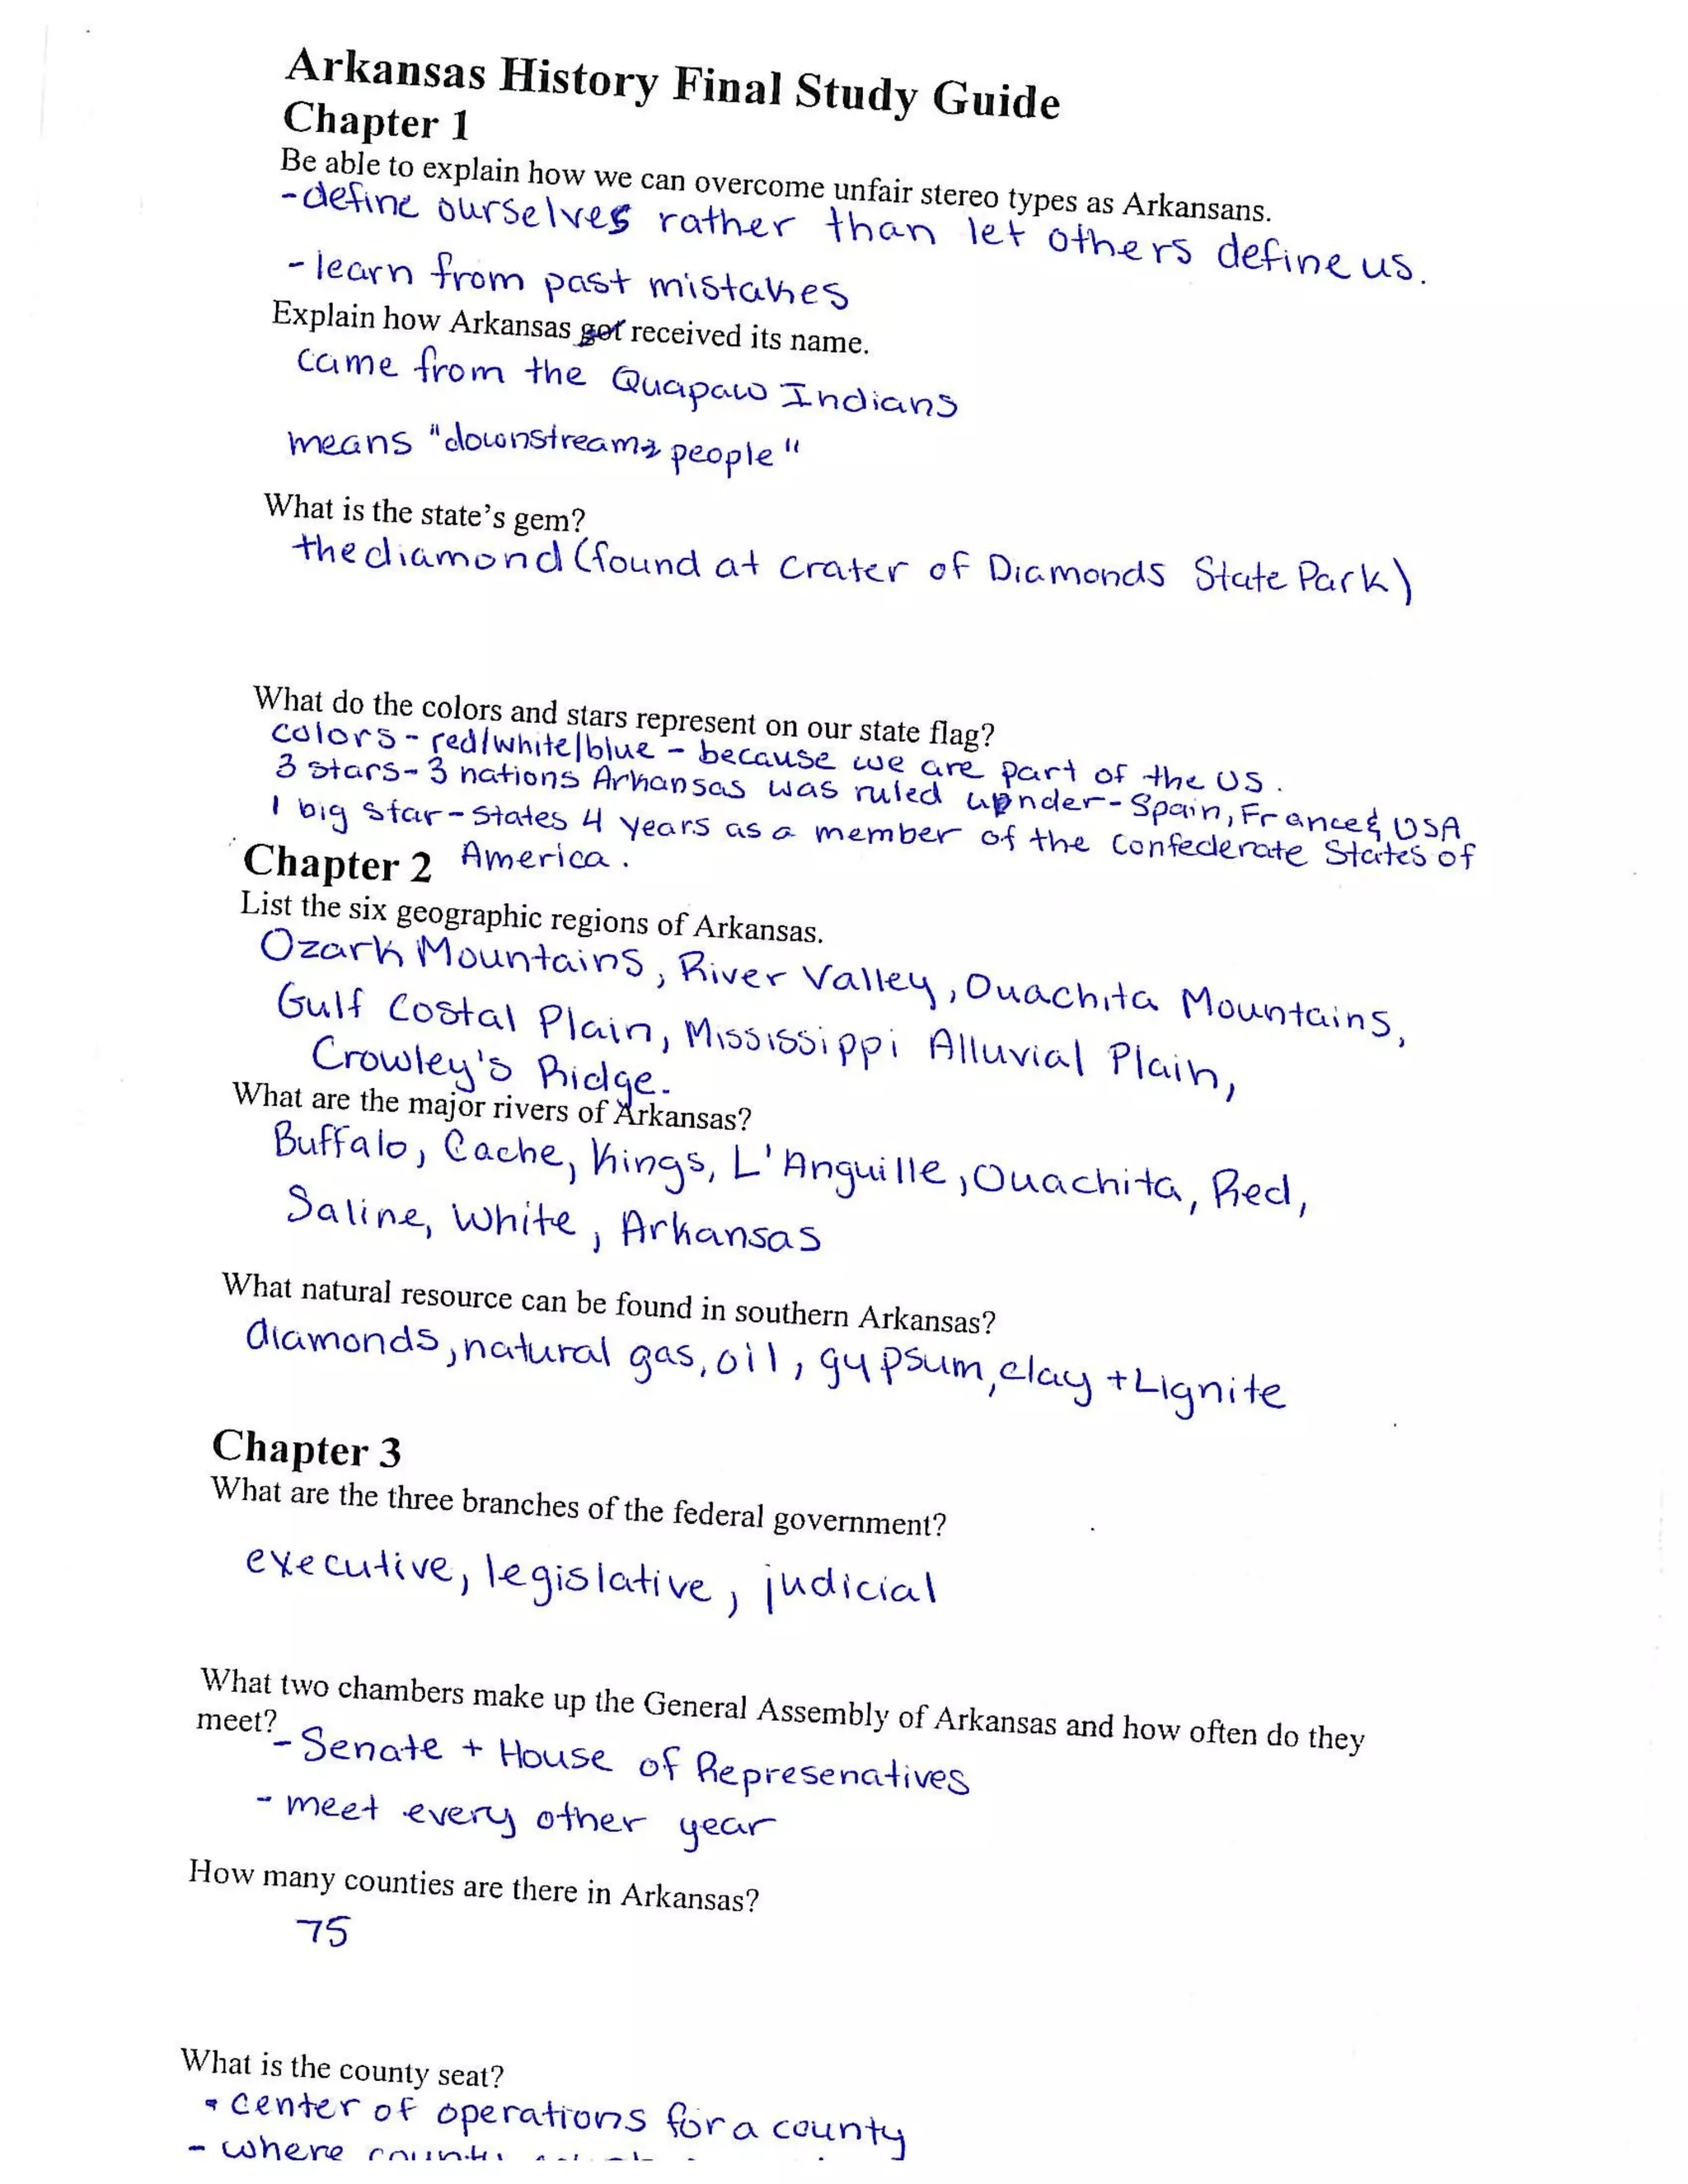 Arkansas History Final Study Guide
Chapter 1
Be able to explain how we can overcome unfair stereo types as Arkansans.
-define ourselves rather than let others define us.
- learn from past mistakes
Explain how Arkansas got received its name.
came from the Quapaw Indians
means "downstream people"
What is the state's gem?
the diamond (found at Crater of Diamonds State Park)
What do the colors and stars represent on our state flag?
colors - red/white/blue - because we are part of the US.
3 stars - 3 nations Arkansas was ruled under - Spain, France & USA
1 big star - states 4 years as a member of the Confederate States of
America.
Chapter 2
List the six geographic regions of Arkansas.
Ozark Mountains, River Valley, Ouachita Mountains,
Gulf Costal Plain, Mississippi Alluvial Plain,
Crowley's Ridge.
What are the major rivers of Arkansas?
Buffalo, Cache, Kings, L'Anguille, Ouachita, Red,
Saline, White, Arkansas
What natural resource can be found in southern Arkansas?
diamonds, natural gas, oil, gypsum, clay + Lignite
Chapter 3
What are the three branches of the federal government?
executive, legislative, judicial
What two chambers make up the General Assembly of Arkansas and how often do they
meet?
- Senate + House of Represenatives
- meet every other year
How many counties are there in Arkansas?
75
What is the county seat?
- center of operations for a county
- where county